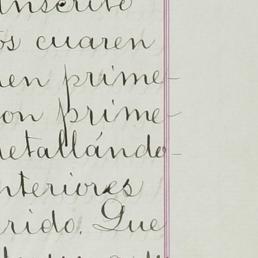 inscribe
os cuaren
en prime-
on prime-
etallándo-
nteriores
rido. Que